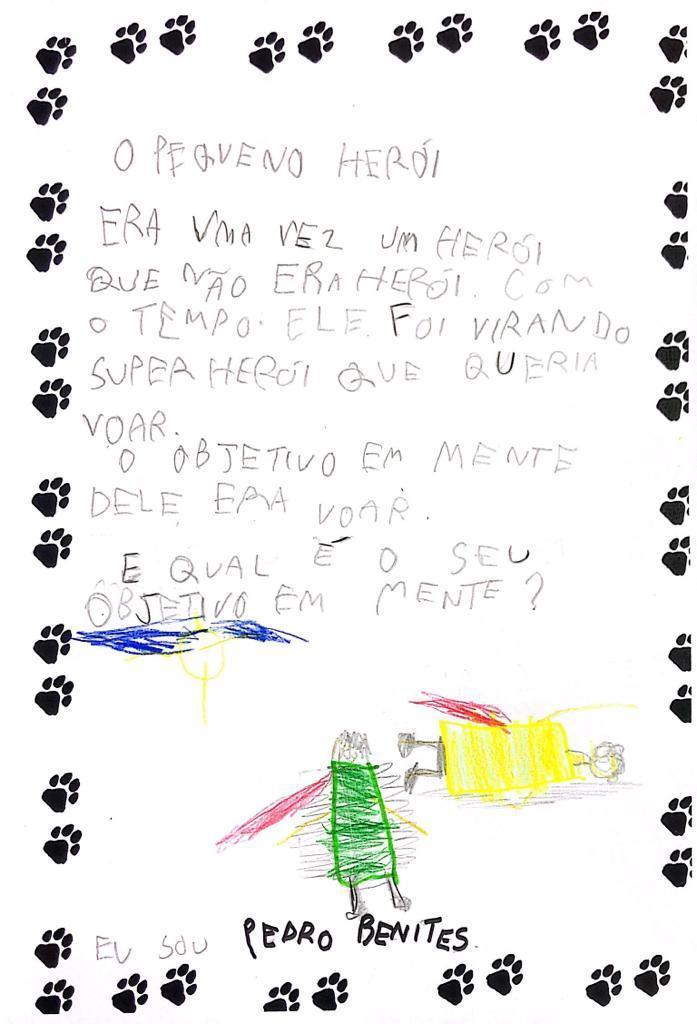 O PEQUENO HERÓI
ERA UMA VEZ UM HERÓI
QUE NÃO ERA HERÓI. COM
O TEMPO. ELE FOI VIRANDO
SUPER HERÓI QUE QUERIA
VOAR.
O OBJETIVO EM MENTE
DELE ERA VOAR.
E QUAL É O SEU
OBJETIVO EM MENTE?
EU SOU PEDRO BENITES.